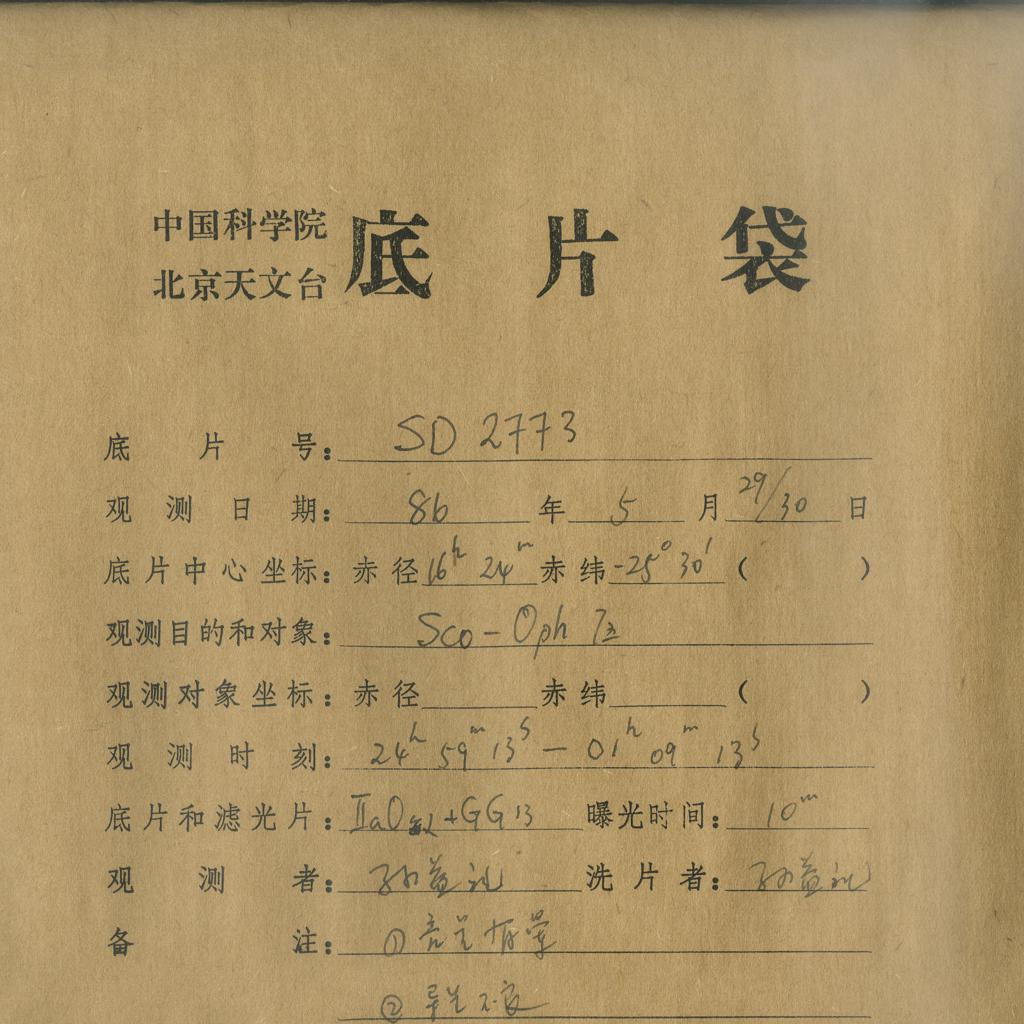 中国科学院
北京天文台
底片袋
底片号： SD 2773
观测日期： 86 年 5 月 29/30 日
底片中心坐标：赤径 16h 24m 赤纬 -25° 30′ （ ）
观测目的和对象： Sco - Oph 区
观测对象坐标：赤径 赤纬 （ ）
观测时刻： 24h 59m 13s — 01h 09m 13s
底片和滤光片： IIaO敏+GG13 曝光时间： 10m
观测者： 孙益礼 洗片者： 孙益礼
备注： ① 亮星有晕
② 导星不良